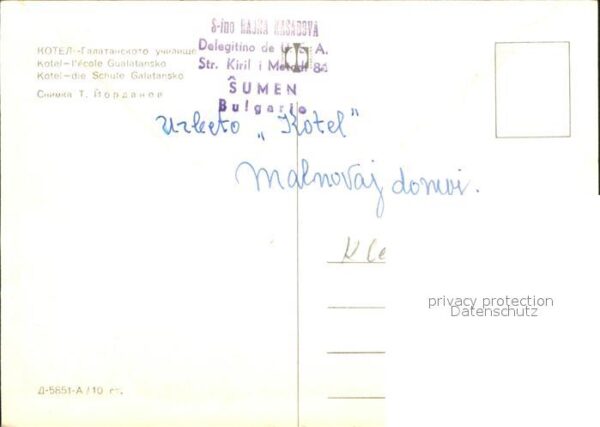 S-ino RAJNA KASABOVA
Delegitino de U. E. A.
Str. Kiril i Metodi 84
ŜUMEN
Bulgario
КОТЕЛ - Галатанското училище
Kotel - l'école Gualatansko
Kotel - die Schule Galatansko
Снимка Т. Йорданов
urbeto „Kotel"
Malnovaj domoi.
Kle
privacy protection
Datenschutz
Д-5851-А/10 ст.